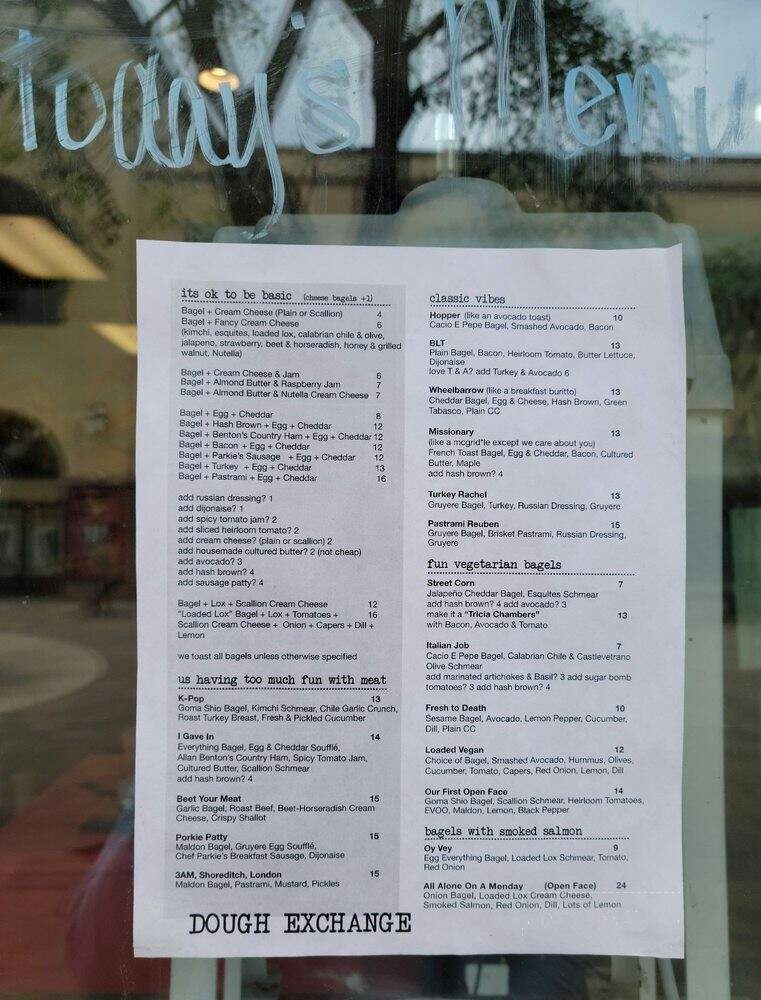 Today's Menu
its ok to be basic (cheese bagels +1)
Bagel + Cream Cheese (Plain or Scallion) 4
Bagel + Fancy Cream Cheese 6
(kimchi, esquites, loaded lox, calabrian chile & olive,
jalapeno, strawberry, beet & horseradish, honey & grilled
walnut, Nutella)
Bagel + Cream Cheese & Jam 6
Bagel + Almond Butter & Raspberry Jam 7
Bagel + Almond Butter & Nutella Cream Cheese 7
Bagel + Egg + Cheddar 8
Bagel + Hash Brown + Egg + Cheddar 12
Bagel + Benton's Country Ham + Egg + Cheddar 12
Bagel + Bacon + Egg + Cheddar 12
Bagel + Parkie's Sausage + Egg + Cheddar 12
Bagel + Turkey + Egg + Cheddar 13
Bagel + Pastrami + Egg + Cheddar 16
add russian dressing? 1
add dijonaise? 1
add spicy tomato jam? 2
add sliced heirloom tomato? 2
add cream cheese? (plain or scallion) 2
add housemade cultured butter? 2 (not cheap)
add avocado? 3
add hash brown? 4
add sausage patty? 4
Bagel + Lox + Scallion Cream Cheese 12
"Loaded Lox" Bagel + Lox + Tomatoes + 16
Scallion Cream Cheese + Onion + Capers + Dill +
Lemon
we toast all bagels unless otherwise specified
us having too much fun with meat
K-Pop 13
Goma Shio Bagel, Kimchi Schmear, Chile Garlic Crunch,
Roast Turkey Breast, Fresh & Pickled Cucumber
I Gave In 14
Everything Bagel, Egg & Cheddar Soufflé,
Allan Benton's Country Ham, Spicy Tomato Jam,
Cultured Butter, Scallion Schmear
add hash brown? 4
Beet Your Meat 15
Garlic Bagel, Roast Beef, Beet-Horseradish Cream
Cheese, Crispy Shallot
Porkie Patty 15
Maldon Bagel, Gruyere Egg Soufflé,
Chef Parkie's Breakfast Sausage, Dijonaise
3AM, Shoreditch, London 15
Maldon Bagel, Pastrami, Mustard, Pickles
DOUGH EXCHANGE
classic vibes
Hopper (like an avocado toast) 10
Cacio E Pepe Bagel, Smashed Avocado, Bacon
BLT 13
Plain Bagel, Bacon, Heirloom Tomato, Butter Lettuce,
Dijonaise
love T & A? add Turkey & Avocado 6
Wheelbarrow (like a breakfast buritto) 13
Cheddar Bagel, Egg & Cheese, Hash Brown, Green
Tabasco, Plain CC
Missionary 13
(like a mcgrid*le except we care about you)
French Toast Bagel, Egg & Cheddar, Bacon, Cultured
Butter, Maple
add hash brown? 4
Turkey Rachel 13
Gruyere Bagel, Turkey, Russian Dressing, Gruyere
Pastrami Reuben 15
Gruyere Bagel, Brisket Pastrami, Russian Dressing,
Gruyere
fun vegetarian bagels
Street Corn 7
Jalapeño Cheddar Bagel, Esquites Schmear
add hash brown? 4 add avocado? 3
make it a "Tricia Chambers" 13
with Bacon, Avocado & Tomato
Italian Job 7
Cacio E Pepe Bagel, Calabrian Chile & Castlevetrano
Olive Schmear
add marinated artichokes & Basil? 3 add sugar bomb
tomatoes? 3 add hash brown? 4
Fresh to Death 10
Sesame Bagel, Avocado, Lemon Pepper, Cucumber,
Dill, Plain CC
Loaded Vegan 12
Choice of Bagel, Smashed Avocado, Hummus, Olives,
Cucumber, Tomato, Capers, Red Onion, Lemon, Dill
Our First Open Face 14
Goma Shio Bagel, Scallion Schmear, Heirloom Tomatoes,
EVOO, Maldon, Lemon, Black Pepper
bagels with smoked salmon
Oy Vey 9
Egg Everything Bagel, Loaded Lox Schmear, Tomato,
Red Onion
All Alone On A Monday (Open Face) 24
Onion Bagel, Loaded Lox Cream Cheese,
Smoked Salmon, Red Onion, Dill, Lots of Lemon